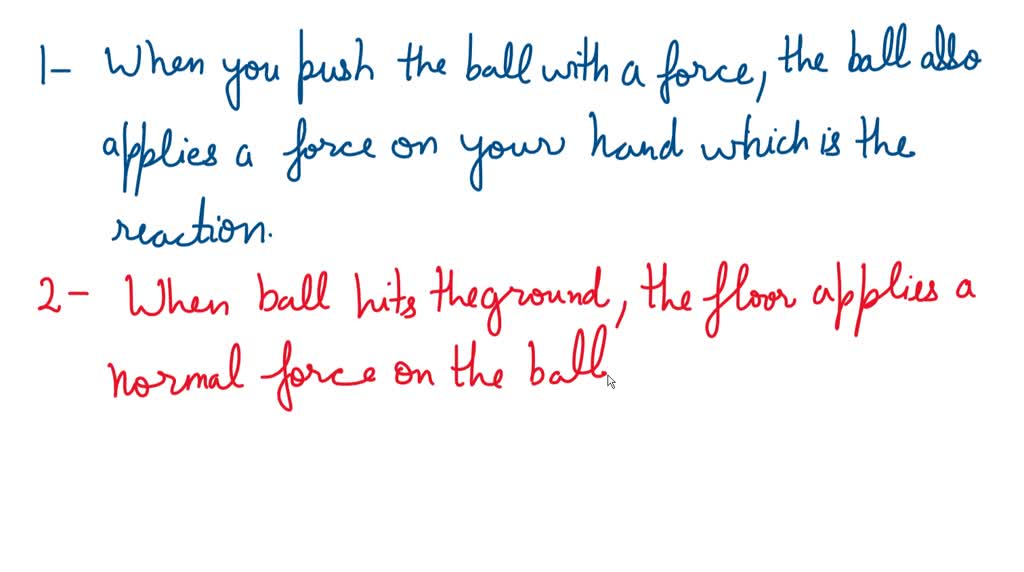 1- When you push the ball with a force, the ball also
applies a force on your hand which is the
reaction.
2- When ball hits the ground, the floor applies a
normal force on the ball